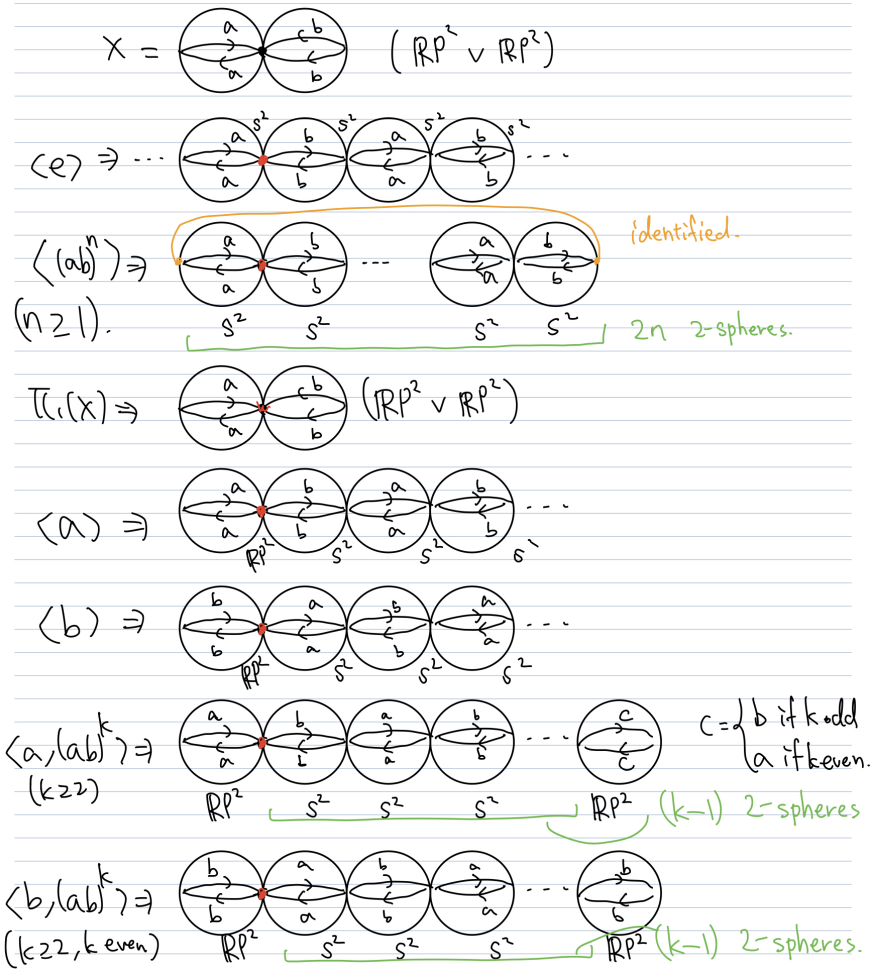 X = a a b b (ℝP² ∨ ℝP²)
⟨e⟩ ⇒ ... a a S² b b S² a a S² b b S² ...
⟨(ab)ⁿ⟩ ⇒ a a b b ... a a b b identified.
(n≥1). S² S² S² S² 2n 2-spheres.
π₁(X) ⇒ a a b b (ℝP² ∨ ℝP²)
⟨a⟩ ⇒ a a b b a a b b ...
ℝP² S² S² S²
⟨b⟩ ⇒ b b a a b b a a ...
ℝP² S² S² S²
⟨a, (ab)ᵏ⟩ ⇒ a a b b a a b b ... c c c = { b if k odd
a if k even.
(k≥2) ℝP² S² S² S² ℝP² (k-1) 2-spheres
⟨b, (ab)ᵏ⟩ ⇒ b b a a b b a a ... b b
(k≥2, k even) ℝP² S² S² S² ℝP² (k-1) 2-spheres.